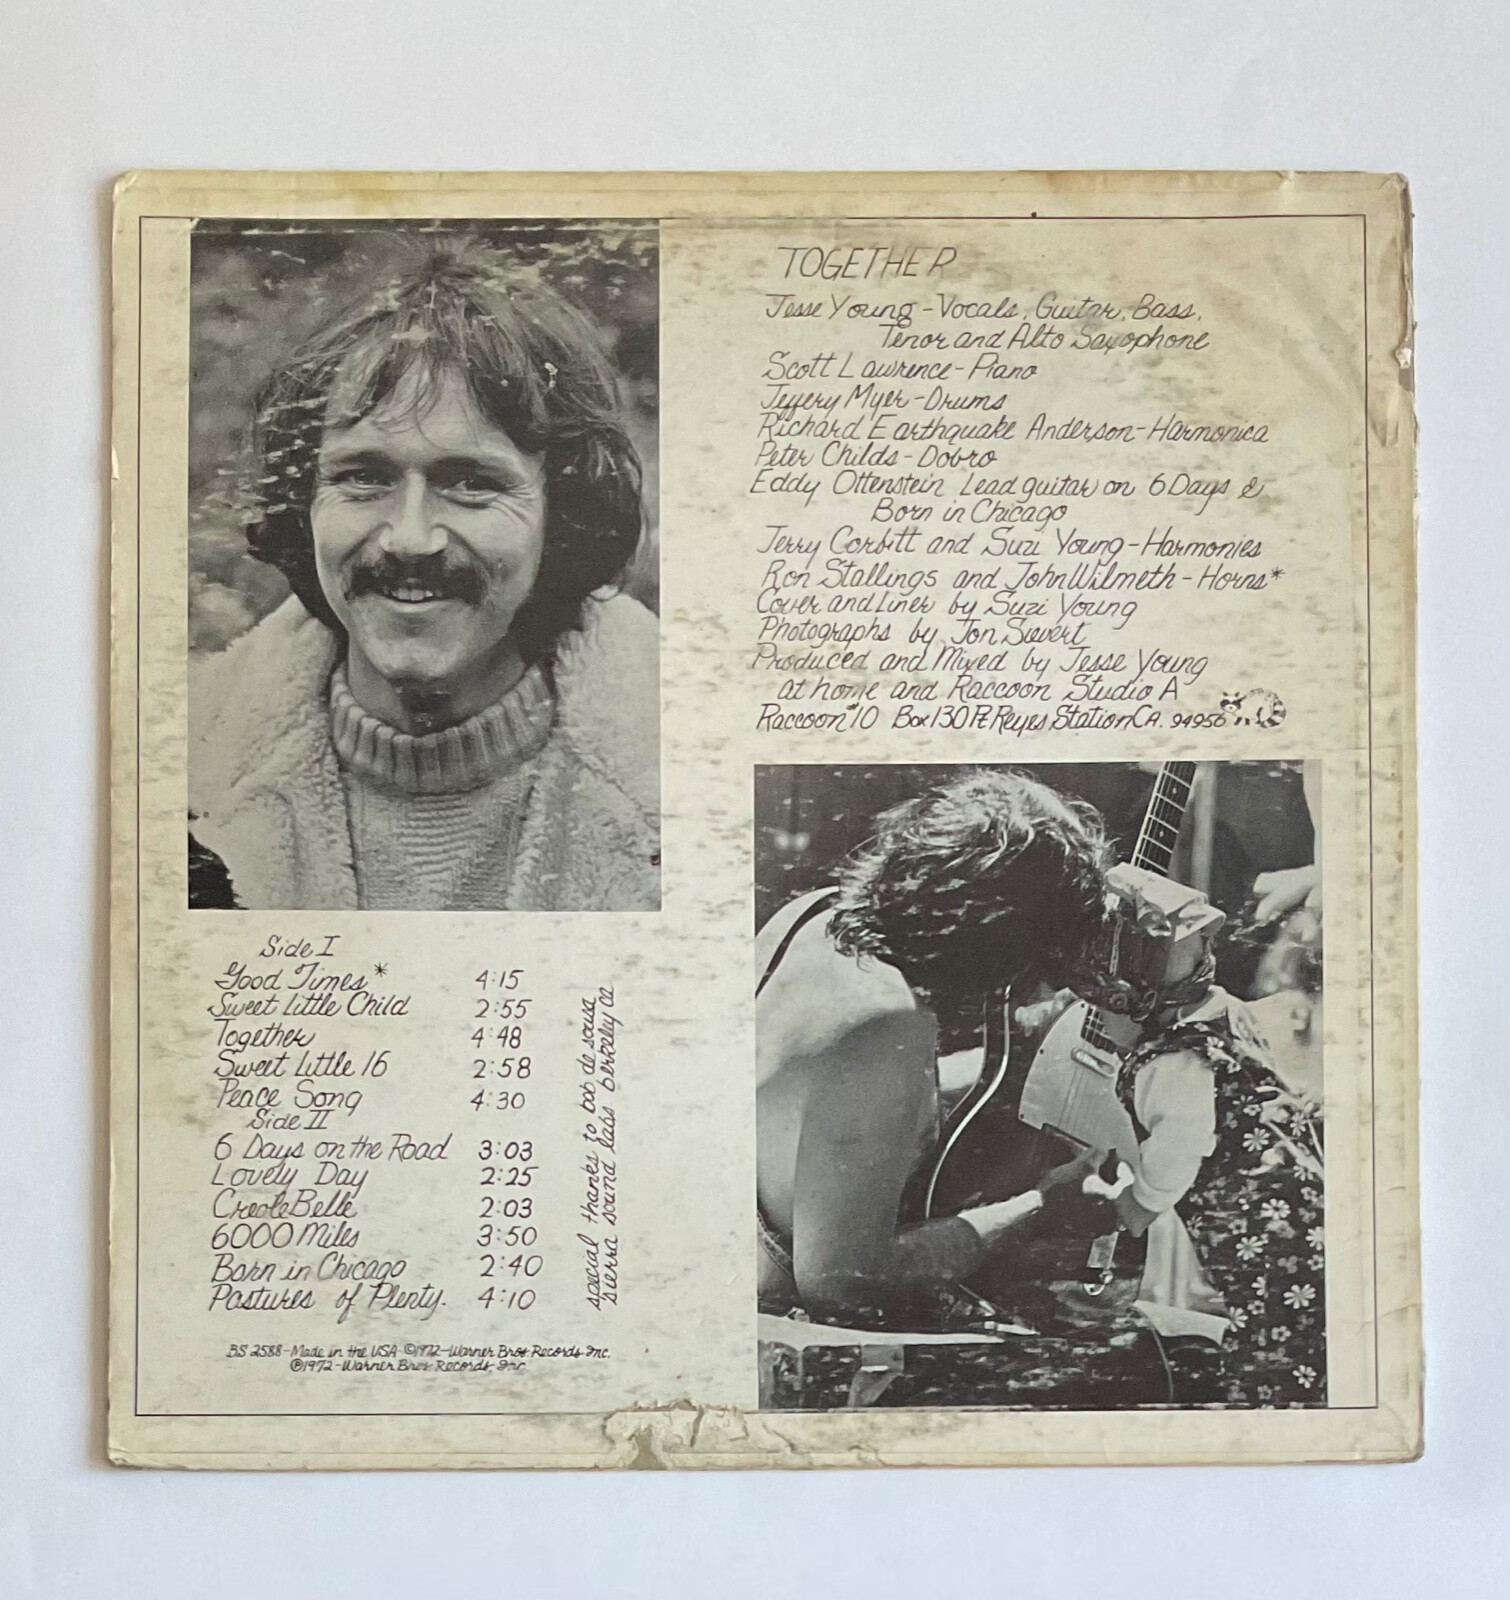 TOGETHER
Jesse Young - Vocals, Guitar, Bass,
Tenor and Alto Saxophone
Scott Lawrence - Piano
Jeffery Myer - Drums
Richard Earthquake Anderson - Harmonica
Peter Childs - Dobro
Eddy Ottenstein Lead guitar on 6 Days &
Born in Chicago
Jerry Corbitt and Suzi Young - Harmonies
Ron Stallings and John Wilmeth - Horns*
Cover and Liner by Suzi Young
Photographs by Jon Sievert
Produced and Mixed by Jesse Young
at home and Raccoon Studio A
Raccoon #10 Box 130 Pt. Reyes Station CA. 94956
Side I
Good Times* 4:15
Sweet Little Child 2:55
Together 4:48
Sweet Little 16 2:58
Peace Song 4:30
Side II
6 Days on the Road 3:03
Lovely Day 2:25
Creole Belle 2:03
6000 Miles 3:50
Born in Chicago 2:40
Pastures of Plenty. 4:10
special thanks to bob de sousa
sierra sound labs berkely ca
BS 2588 - Made in the USA ©1972 - Warner Bros. Records, Inc.
℗1972 - Warner Bros. Records, Inc.